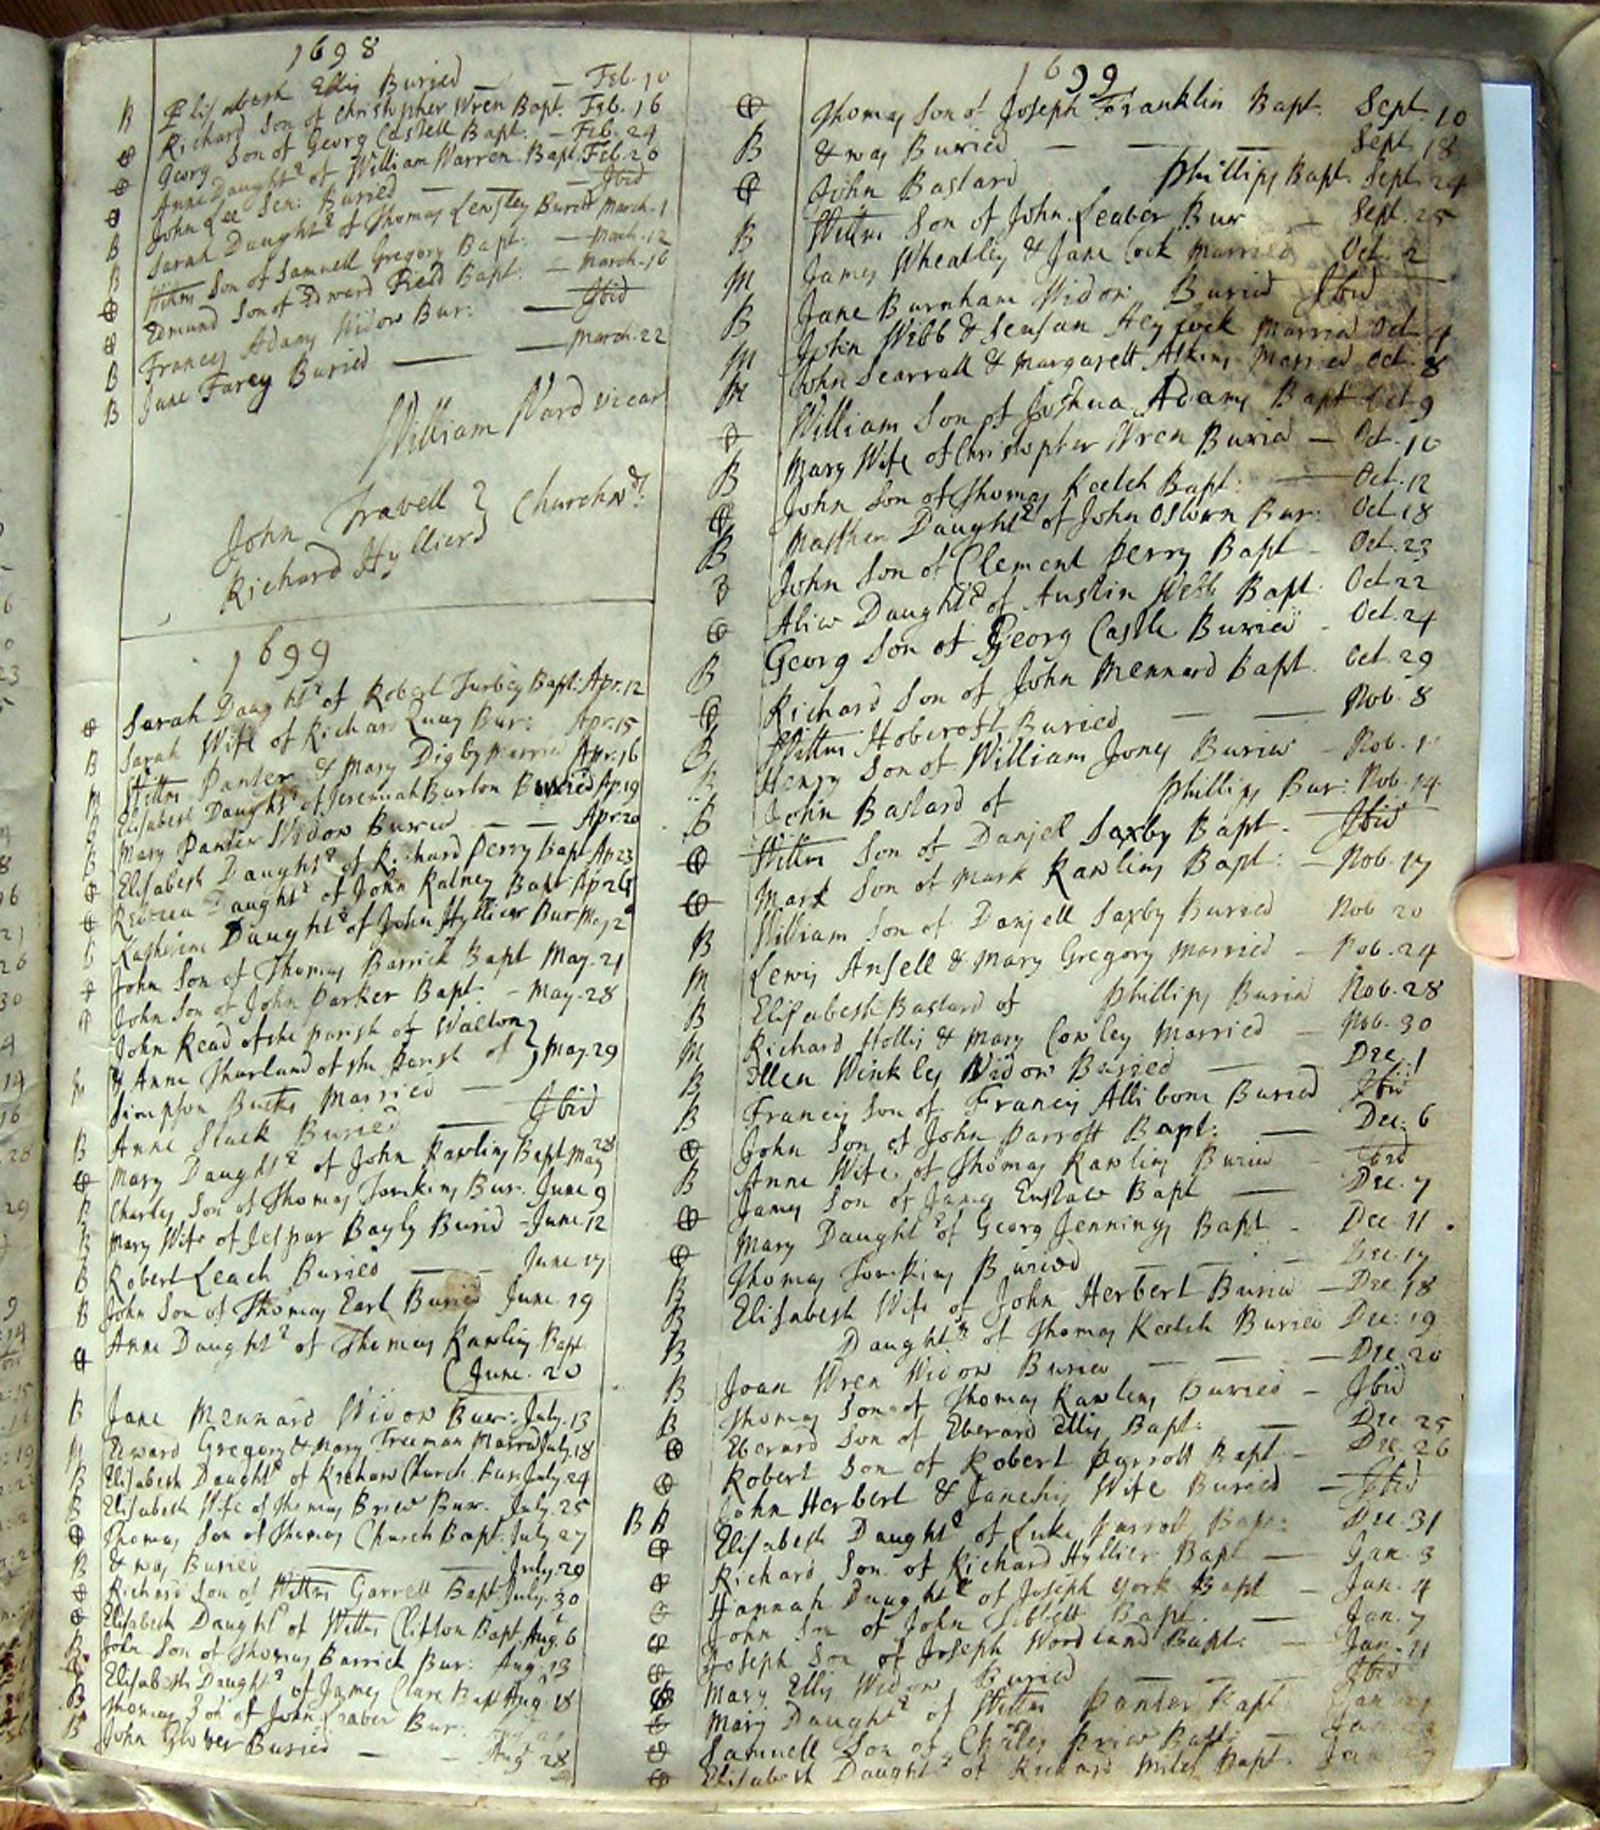 1698
B Elisabeth Ellis Buried — — Feb. 10
Richard Son of Christopher Wren Bapt. Feb. 16
Georg Son of Georg Castell Bapt. — Feb. 24
Anne Daughtr of William Warren Bapt. Feb. 26
John Lee Sen: Buried — — Ibid
B Sarah Daughtr of Thomas Lensley Buried March. 1
Willm Son of Samuell Gregory Bapt. — March. 12
Edmund Son of Edward Field Bapt: — March. 16
B Frances Adams Widow Bur: — Ibid
B Jane Farey Buried — — March. 22
William Ward Vicar
John Travell } Churchwds:
Richard Hyllierd
1699
Sarah Daughtr of Robert Turbey Bapt: Apr. 12
B Sarah Wife of Richard Quay Bur: Apr. 15
M Willm Panter & Mary Digby married Apr. 16
B Elisabeth Daughtr of Jeremiah Burton Buried Ap. 19
B Mary Panter Widow Buried — — Apr. 20
Elisabeth Daughtr of Richard Perry Bapt Ap 23
Rebecca Daughtr of John Ratney Bapt Ap 26
B Katherine Daughtr of John Hyllier Bur May 2
John Son of Thomas Barrick Bapt May. 21
John Son of John Parker Bapt. — May. 28
John Read of the parish of Walton }
M & Anne Thurland of the Parish of } May. 29
Simpson Bucks Married —
B Anne Stuck Buried — Ibid
Mary Daughtr of John Rawlins Bapt May 28
B Charles Son of Thomas Tomkins Bur. June 9
B Mary Wife of Jesper Bayly Buried — June 12
B Robert Leach Buried — — June 17
B John Son of Thomas Earl Buried June. 19
Anne Daughtr of Thomas Rawlins Bapt.
(June. 20
B Jane Mennard Widow Bur: July. 13
M Edward Gregory & Mary Treeman Married July. 18
B Elisabeth Daughtr of Richard Church Bur July. 24
B Elisabeth Wife of Thomas Brew Bur. July. 25
Thomas Son of Thomas Church Bapt. July. 27
B & was Buried — — July. 29
Richard Son of Willm Garrett Bapt. July. 30
Elisabeth Daughtr of Willm Clifton Bapt Aug. 6
B John Son of Thomas Barrick Bur: Aug. 13
Elisabeth Daughtr of James Clare Bapt Aug. 18
B Thomas Son of John Leaber Bur:
B John Glover Buried — — Aug 28
1699
Thomas Son of Joseph Franklin Bapt. Sept. 10
B & was Buried — — — Sept. 18
John Bastard Phillips Bapt. Sept. 24
B Willm Son of John Leaber Bur — Sept. 25
M James Wheatley & Jane Cock Married Oct. 2
B Jane Burnham Widow Buried Ibid
M John Webb & Seusan Heycock Married Oct. 4
M John Scarrall & Margarett Atkins Married Oct. 8
William Son of Joshua Adams Bapt Oct. 9
B Mary Wife of Christopher Wren Buried — Oct. 10
John Son of Thomas Keech Bapt: — Oct. 12
B Matthew Daughtr of John Osborn Bur: Oct. 18
John Son of Clement Perry Bapt — Oct. 23
Alice Daughtr of Austin Webb Bapt. Oct. 22
B Georg Son of Georg Castle Buried — Oct. 24
Richard Son of John Mennard Bapt. Oct. 29
B Willm Hobcroft Buried — — Nob. 8
B Henry Son of William Jones Buried — Nob.
B John Bastard of Phillips Bur: Nob. 14
Willm Son of Danjell Saxby Bapt. — Ibid
Mark Son of Mark Rawlins Bapt: — Nob. 17
B William Son of Danjell Saxby Buried Nob 20
M Lewis Ansell & Mary Gregory Married — Nob. 24
B Elisabeth Bastard of Phillips Buried Nob. 28
M Richard Hollis & Mary Cowley Married — Nob. 30
B Ellen Winkles Widow Buried — Dec. 1
B Francis Son of Francis Allibone Buried Ibid
John Son of John Parrott Bapt: — Dec. 6
B Anne Wife of Thomas Rawlins Buried — Ibid
James Son of James Eustace Bapt — Dec. 7
Mary Daughtr of Georg Jennings Bapt — Dec. 11
B Thomas Tomkins Buried — — Dec. 17
B Elisabeth Wife of John Herbert Buried — Dec. 18
B Daughtr of Thomas Keech Buried Dec: 19
B Joan Wren Widow Buried — — — Dec. 20
B Thomas Son of Thomas Rawlins Buried — Ibid
Eberard Son of Eberard Ellis Bapt: — Dec. 25
Robert Son of Robert Parrott Bapt — Dec. 26
B B John Herbert & Jane his Wife Buried — Ibid
Elisabeth Daughtr of Luke Parrott Bapt: Dec. 31
Richard Son of Richard Hyllier Bapt — Jan. 3
Hannah Daughtr of Joseph York Bapt — Jan. 4
John Son of John Tibbett Bapt. — Jan. 7
Joseph Son of Joseph Wordland Bapt. — Jan. 11
B Mary Ellis Widow Buried — — Ibid
Mary Daughtr of Willm Panter Bapt Jan
Samuell Son of Charles Price Bapt: — Jan
Elisabeth Daughtr of Richard Miles Bapt. Jan